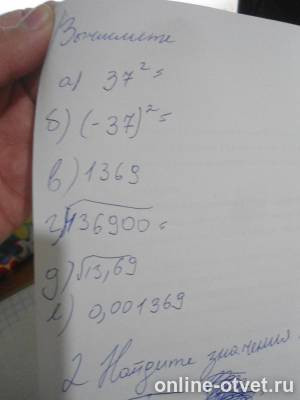 Вычислите
а) 37² =
б) (-37)² =
в) 1369
г) √136900 =
д) √13,69
е) 0,001369
2 Найдите значения
online-otvet.ru